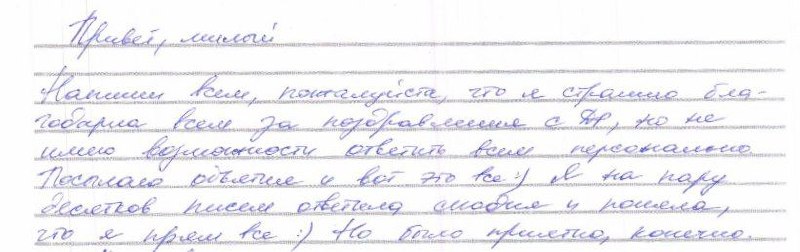 Привет, милый
Напиши всем, пожалуйста, что я страшно бла-
годарна всем за поздравления с ДР, но не
имею возможности ответить всем персонально
Посылаю объятия и вот это все :) Я на пару
десятков писем ответила сходия и поняла,
что я прям все :) Но было приятно, конечно.